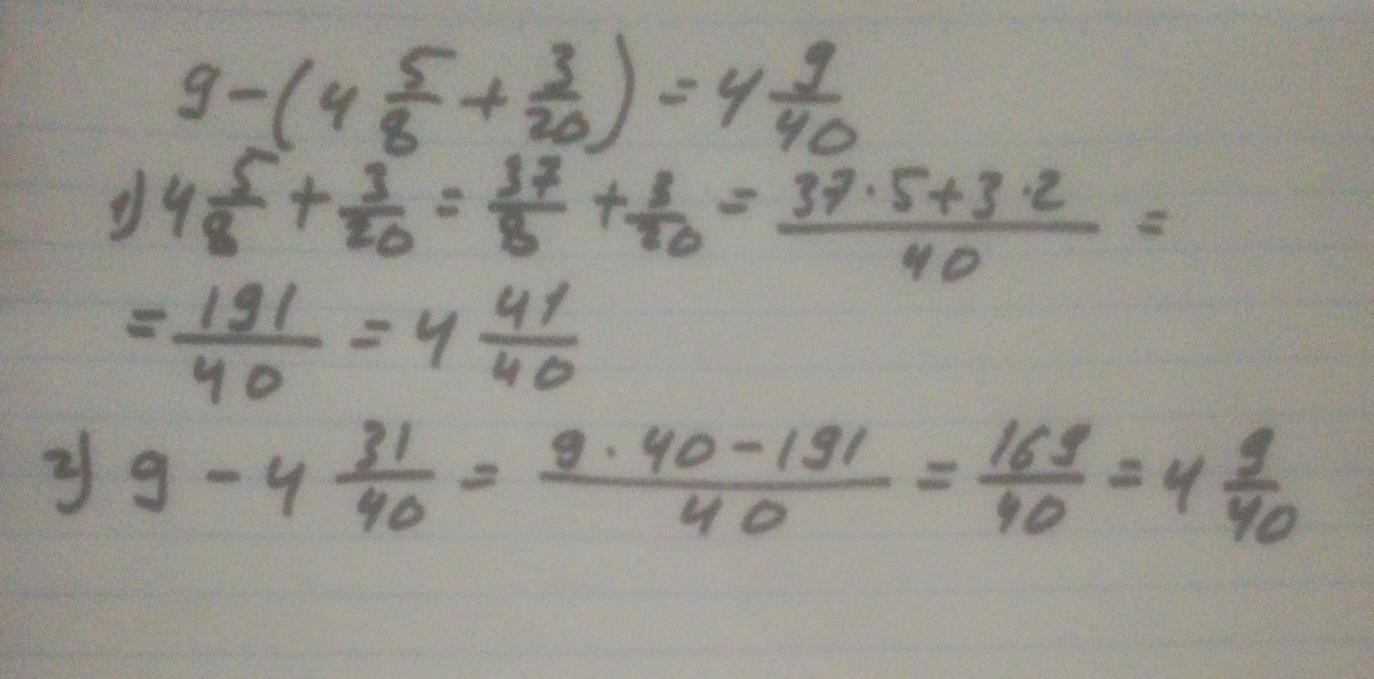 9-(4 5/8 + 3/20) = 4 9/40
1) 4 5/8 + 3/20 = 37/8 + 3/20 = (37·5+3·2)/40 =
= 191/40 = 4 41/40
2) 9 - 4 31/40 = (9·40-191)/40 = 169/40 = 4 9/40